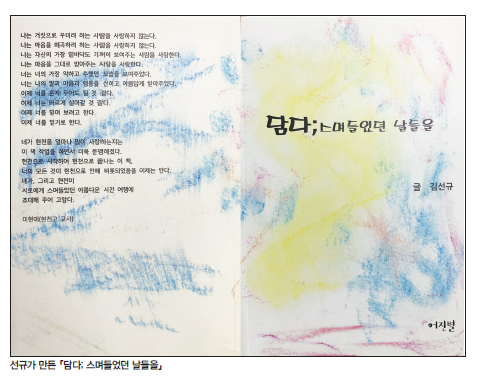 나는 거짓으로 꾸미려 하는 사람을 사랑하지 않는다.
나는 마음을 왜곡하려 하는 사람을 사랑하지 않는다.
나는 자신의 가장 밑바닥도 기꺼이 보여주는 사람을 사랑한다.
나는 마음을 그대로 받아주는 사람을 사랑한다.
나는 너의 가장 약하고 수했던 모습을 보여주었다.
나는 나의 말과 마음과 행동을 선하고 아름답게 받아주었다.
이제 너를 혼자 두어도 될 것 같다.
이제 너는 바르게 살아갈 것 같다.
이제 너를 멀리 보려고 한다.
이제 너를 믿기로 한다.
네가 현천을 얼마나 많이 사랑하는지는
이 책 작업을 하면서 더욱 분명해졌다.
현천으로 시작하여 현천으로 끝나는 이 책,
너의 모든 것이 현천으로 인해 비롯되었음을 이제는 안다.
네가, 그리고 현천이
서로에게 스며들었던 아름다운 시간 여행에
초대해 주어 고맙다.
이현애(현천고 교사)
담다;스며들었던 날들을
글 김선규
어진별
선규가 만든 「담다; 스며들었던 날들을」